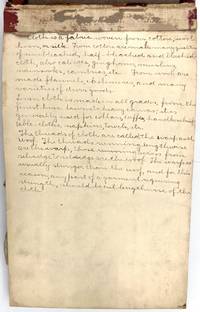 Cloth is a fabric woven from cotton, wool,
linen, or silk. From cotton are made many qualities
of unbleached, half-bleached and bleached
cloth, also calicoes, ginghams, muslins,
nainsooks, cambrics, etc. From wool are
made flannels, cashmeres, and many
varieties of dress goods.
Linen cloth is made in all grades, from the
finest linen lawns to heavy canvas; it is
generally used for collars, cuffs, handkerchiefs
table-cloths, napkins, towels, etc.
The threads of cloth are called the warp and
woof. The threads running lengthwise
are the warp, those running across from
selvage to selvage are the woof. The warp is
usually stronger than the woof, and for this
reason, any part of a garment requiring
strength, should be cut lengthwise of the
cloth.